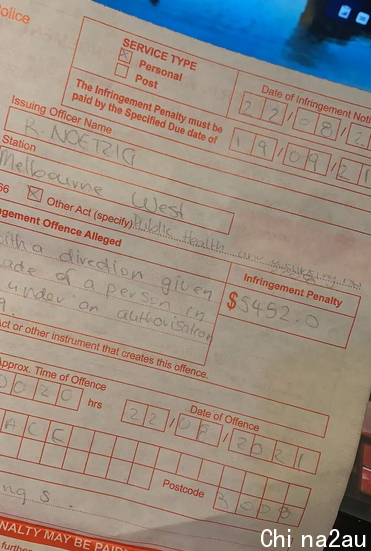 olice
SERVICE TYPE
Personal
Post
Date of Infringement Noti
22/08/2
The Infringement Penalty must be
paid by the Specified Due date of
19/09/21
Issuing Officer Name
R. NOETZIG
Station
Melbourne West
66 Other Act (specify) Public Health and Wellbeing
gement Offence Alleged
with a direction given
ade of a person in
under an authorisation
Infringement Penalty
$5452.0
Act or other instrument that creates this offence.
Approx. Time of Offence
0020 hrs
Date of Offence
22/08/2021
ACE
Postcode 3008
ngs.
NALTY MAY BE PAID
further
Chi na2au